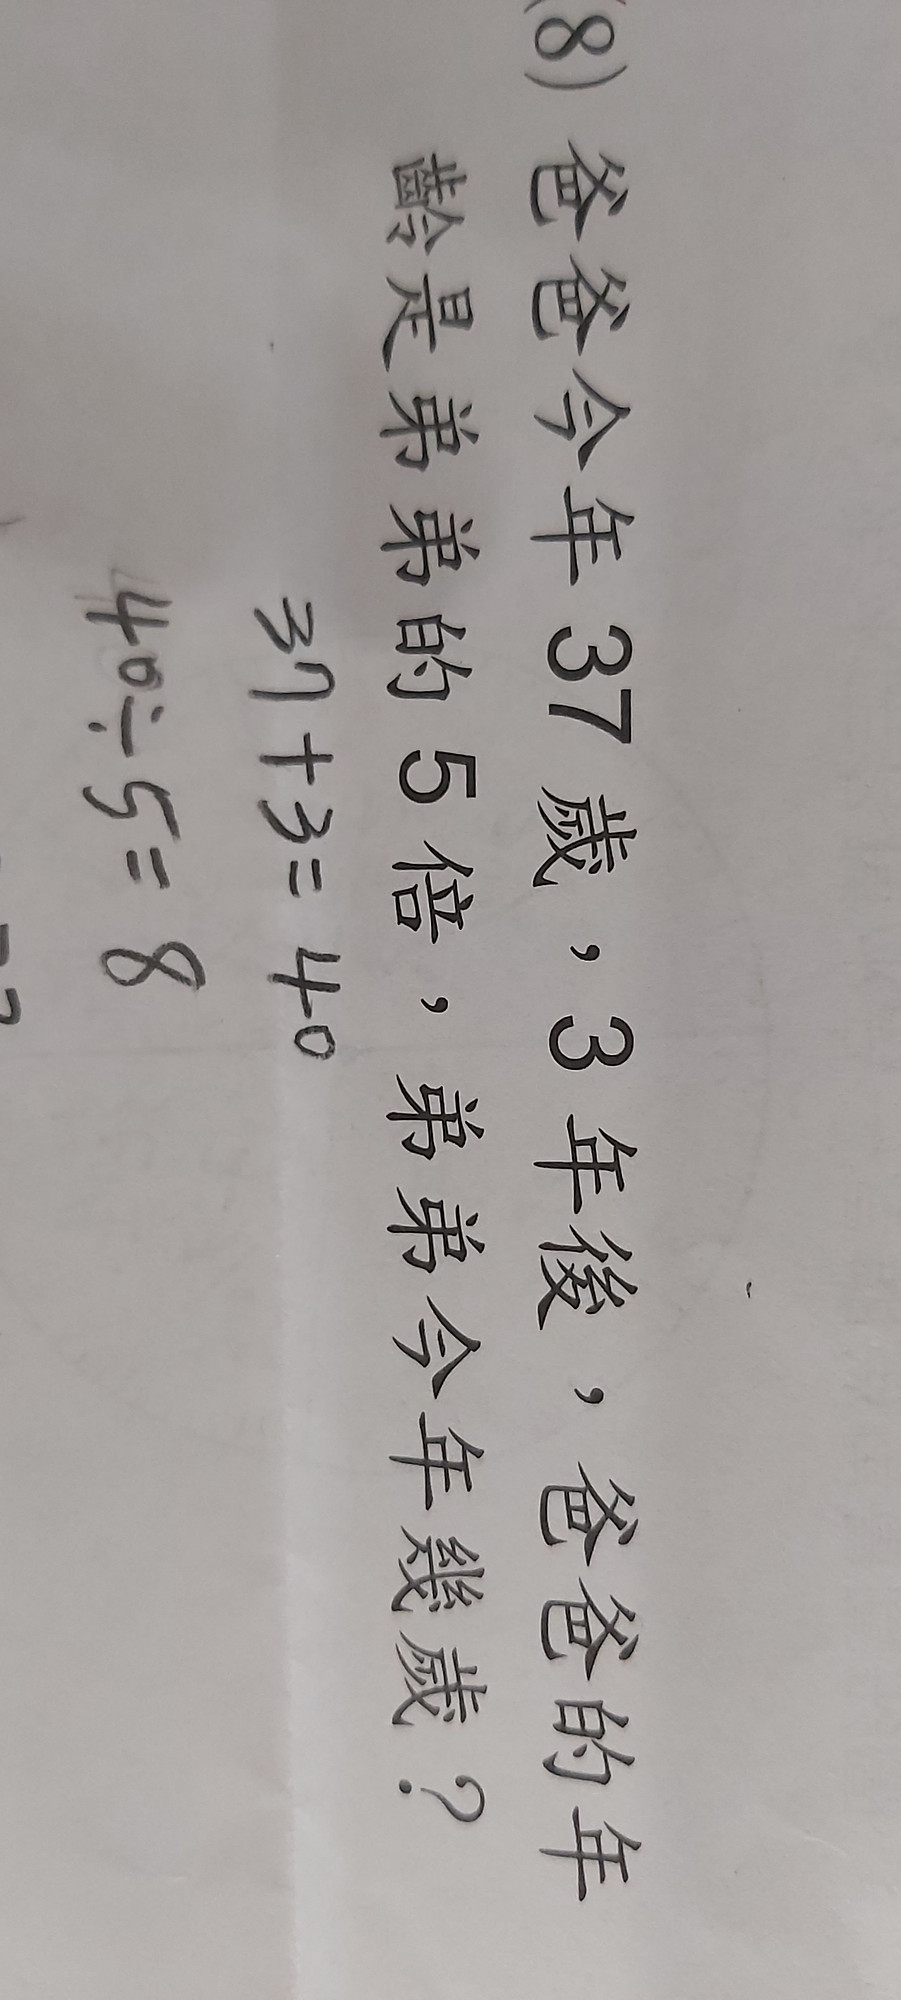 (8) 爸爸今年 37 歲，3 年後，爸爸的年
齡是弟弟的 5 倍，弟弟今年幾歲？
37+3=40
40÷5=8